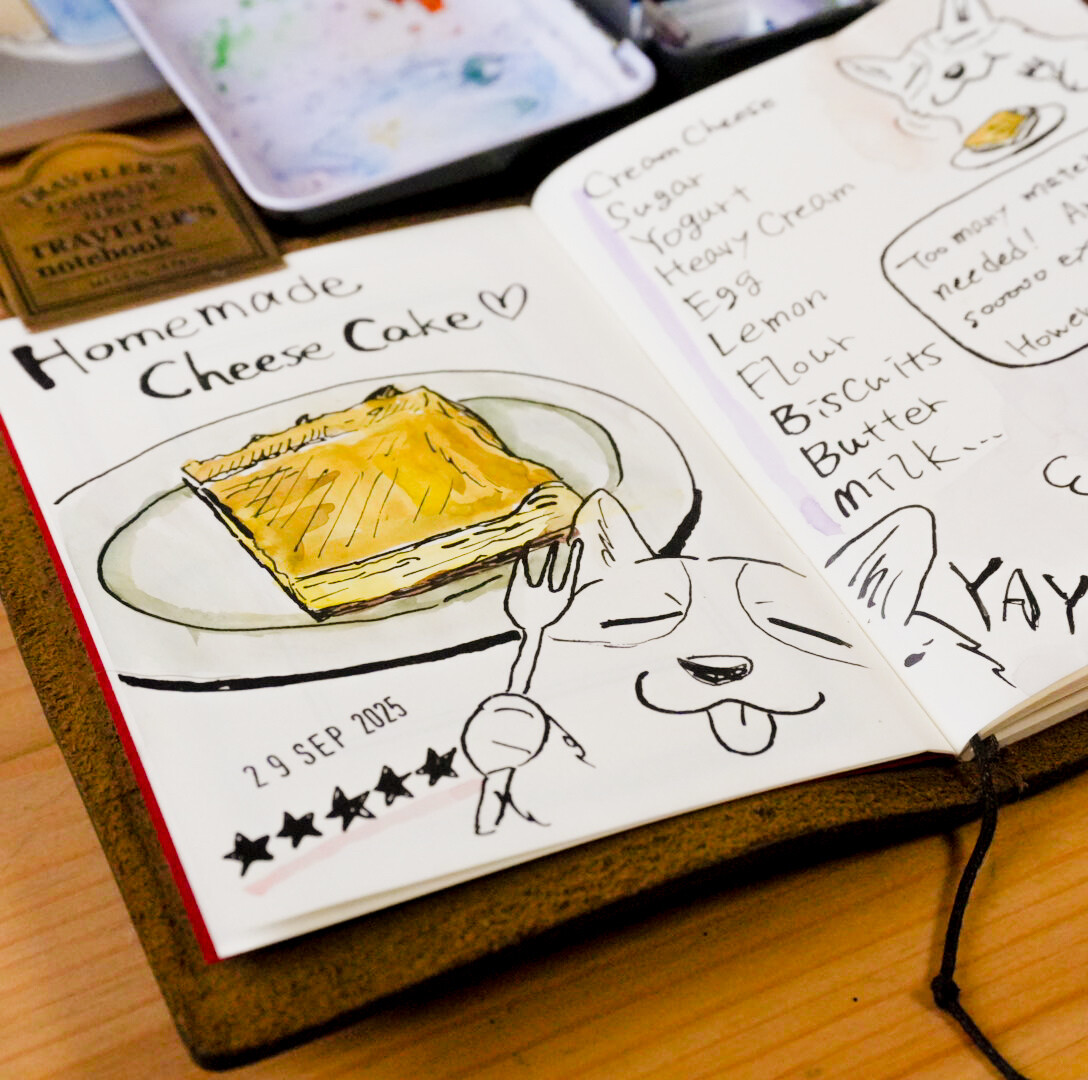 TRAVELER'S
COMPANY
TRAVELER'S
notebook
Homemade
Cheese Cake
29 SEP 2025
Cream Cheese
Sugar
Yogurt
Heavy Cream
Egg
Lemon
Flour
Biscuits
Butter
MILk...
Too many mate
needed! A
sooooo ex
Howe
YAY